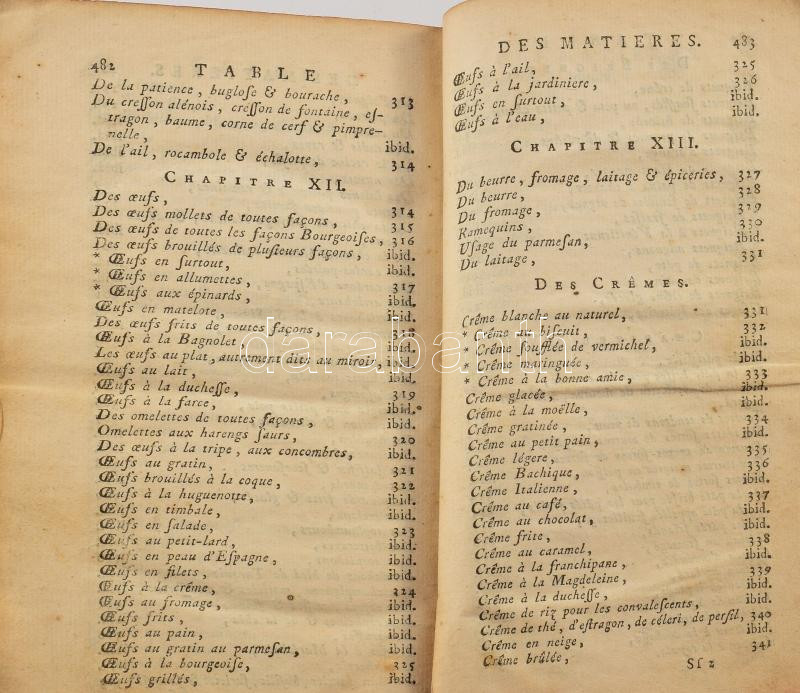 482 TABLE
De la patience, buglose & bourache, 313
Du cresson alénois, cresson de fontaine, es-
tragon, baume, corne de cerf & pimpre-
nelle, ibid.
De l'ail, rocambole & échalotte, 314
CHAPITRE XII.
Des œufs, 314
Des œufs mollets de toutes façons, 315
Des œufs de toutes les façons Bourgeoises, 316
Des œufs brouillés de plusieurs façons, ibid.
* Œufs en surtout, ibid.
* Œufs en allumettes, 317
* Œufs aux épinards, ibid.
Œufs en matelote, ibid.
Des œufs frits de toutes façons, 318
Œufs à la Bagnolet, ibid.
Les œufs au plat, autrement dits au miroir,
Œufs au lait, ibid.
Œufs à la duchesse, 319
Œufs à la farce, ibid.
Des omelettes de toutes façons, ibid.
Omelettes aux harengs saurs, 320
Des œufs à la tripe, aux concombres, ibid.
Œufs au gratin, 321
Œufs brouillés à la coque, 322
Œufs à la huguenotte, ibid.
Œufs en timbale, ibid.
Œufs en salade, 323
Œufs au petit-lard, ibid.
Œufs en peau d'Espagne, ibid.
Œufs en filets, ibid.
Œufs à la crême, 324
Œufs au fromage, ibid.
Œufs frits, ibid.
Œufs au pain, ibid.
Œufs au gratin au parmesan, ibid.
Œufs à la bourgeoise, 325
Œufs grillés, ibid.
DES MATIERES. 483
Œufs à l'ail, 325
Œufs à la jardiniere, 326
Œufs en surtout, ibid.
Œufs à l'eau, ibid.
CHAPITRE XIII.
Du beurre, fromage, laitage & épiceries, 327
Du beurre, 328
Du fromage, 329
Ramequins, 330
Usage du parmesan, ibid.
Du laitage, 331
DES CRÊMES.
Crême blanche au naturel, 331
* Crême au biscuit, 332
* Crême soufflée de vermichel, ibid.
* Crême maringuée, ibid.
* Crême à la bonne amie, 333
Crême glacée, ibid.
Crême à la moëlle, ibid.
Crême gratinée, 334
Crême au petit pain, ibid.
Crême légere, 335
Crême Bachique, 336
Crême Italienne, ibid.
Crême au café, 337
Crême au chocolat, ibid.
Crême frite, 338
Crême au caramel, ibid.
Crême à la franchipane, 339
Crême à la Magdeleine, ibid.
Crême à la duchesse, ibid.
Crême de riz pour les convalescents, ibid.
Crême de thé, d'estragon, de céleri, de persil, 340
Crême en neige, ibid.
Crême brûlée, 341
Ss 2
darabanth